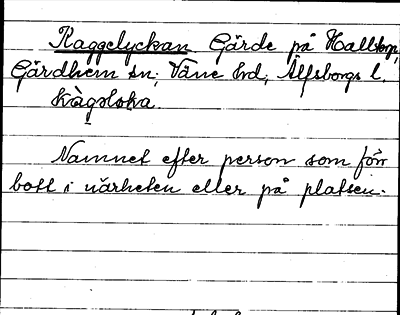 Kaggelyckan Gärde på Hallstorp,
Gärdhem sn; Väne hd, Älfsborgs l.
Kàgəloka.
Namnet efter person som förr
bott i närheten eller på platsen.